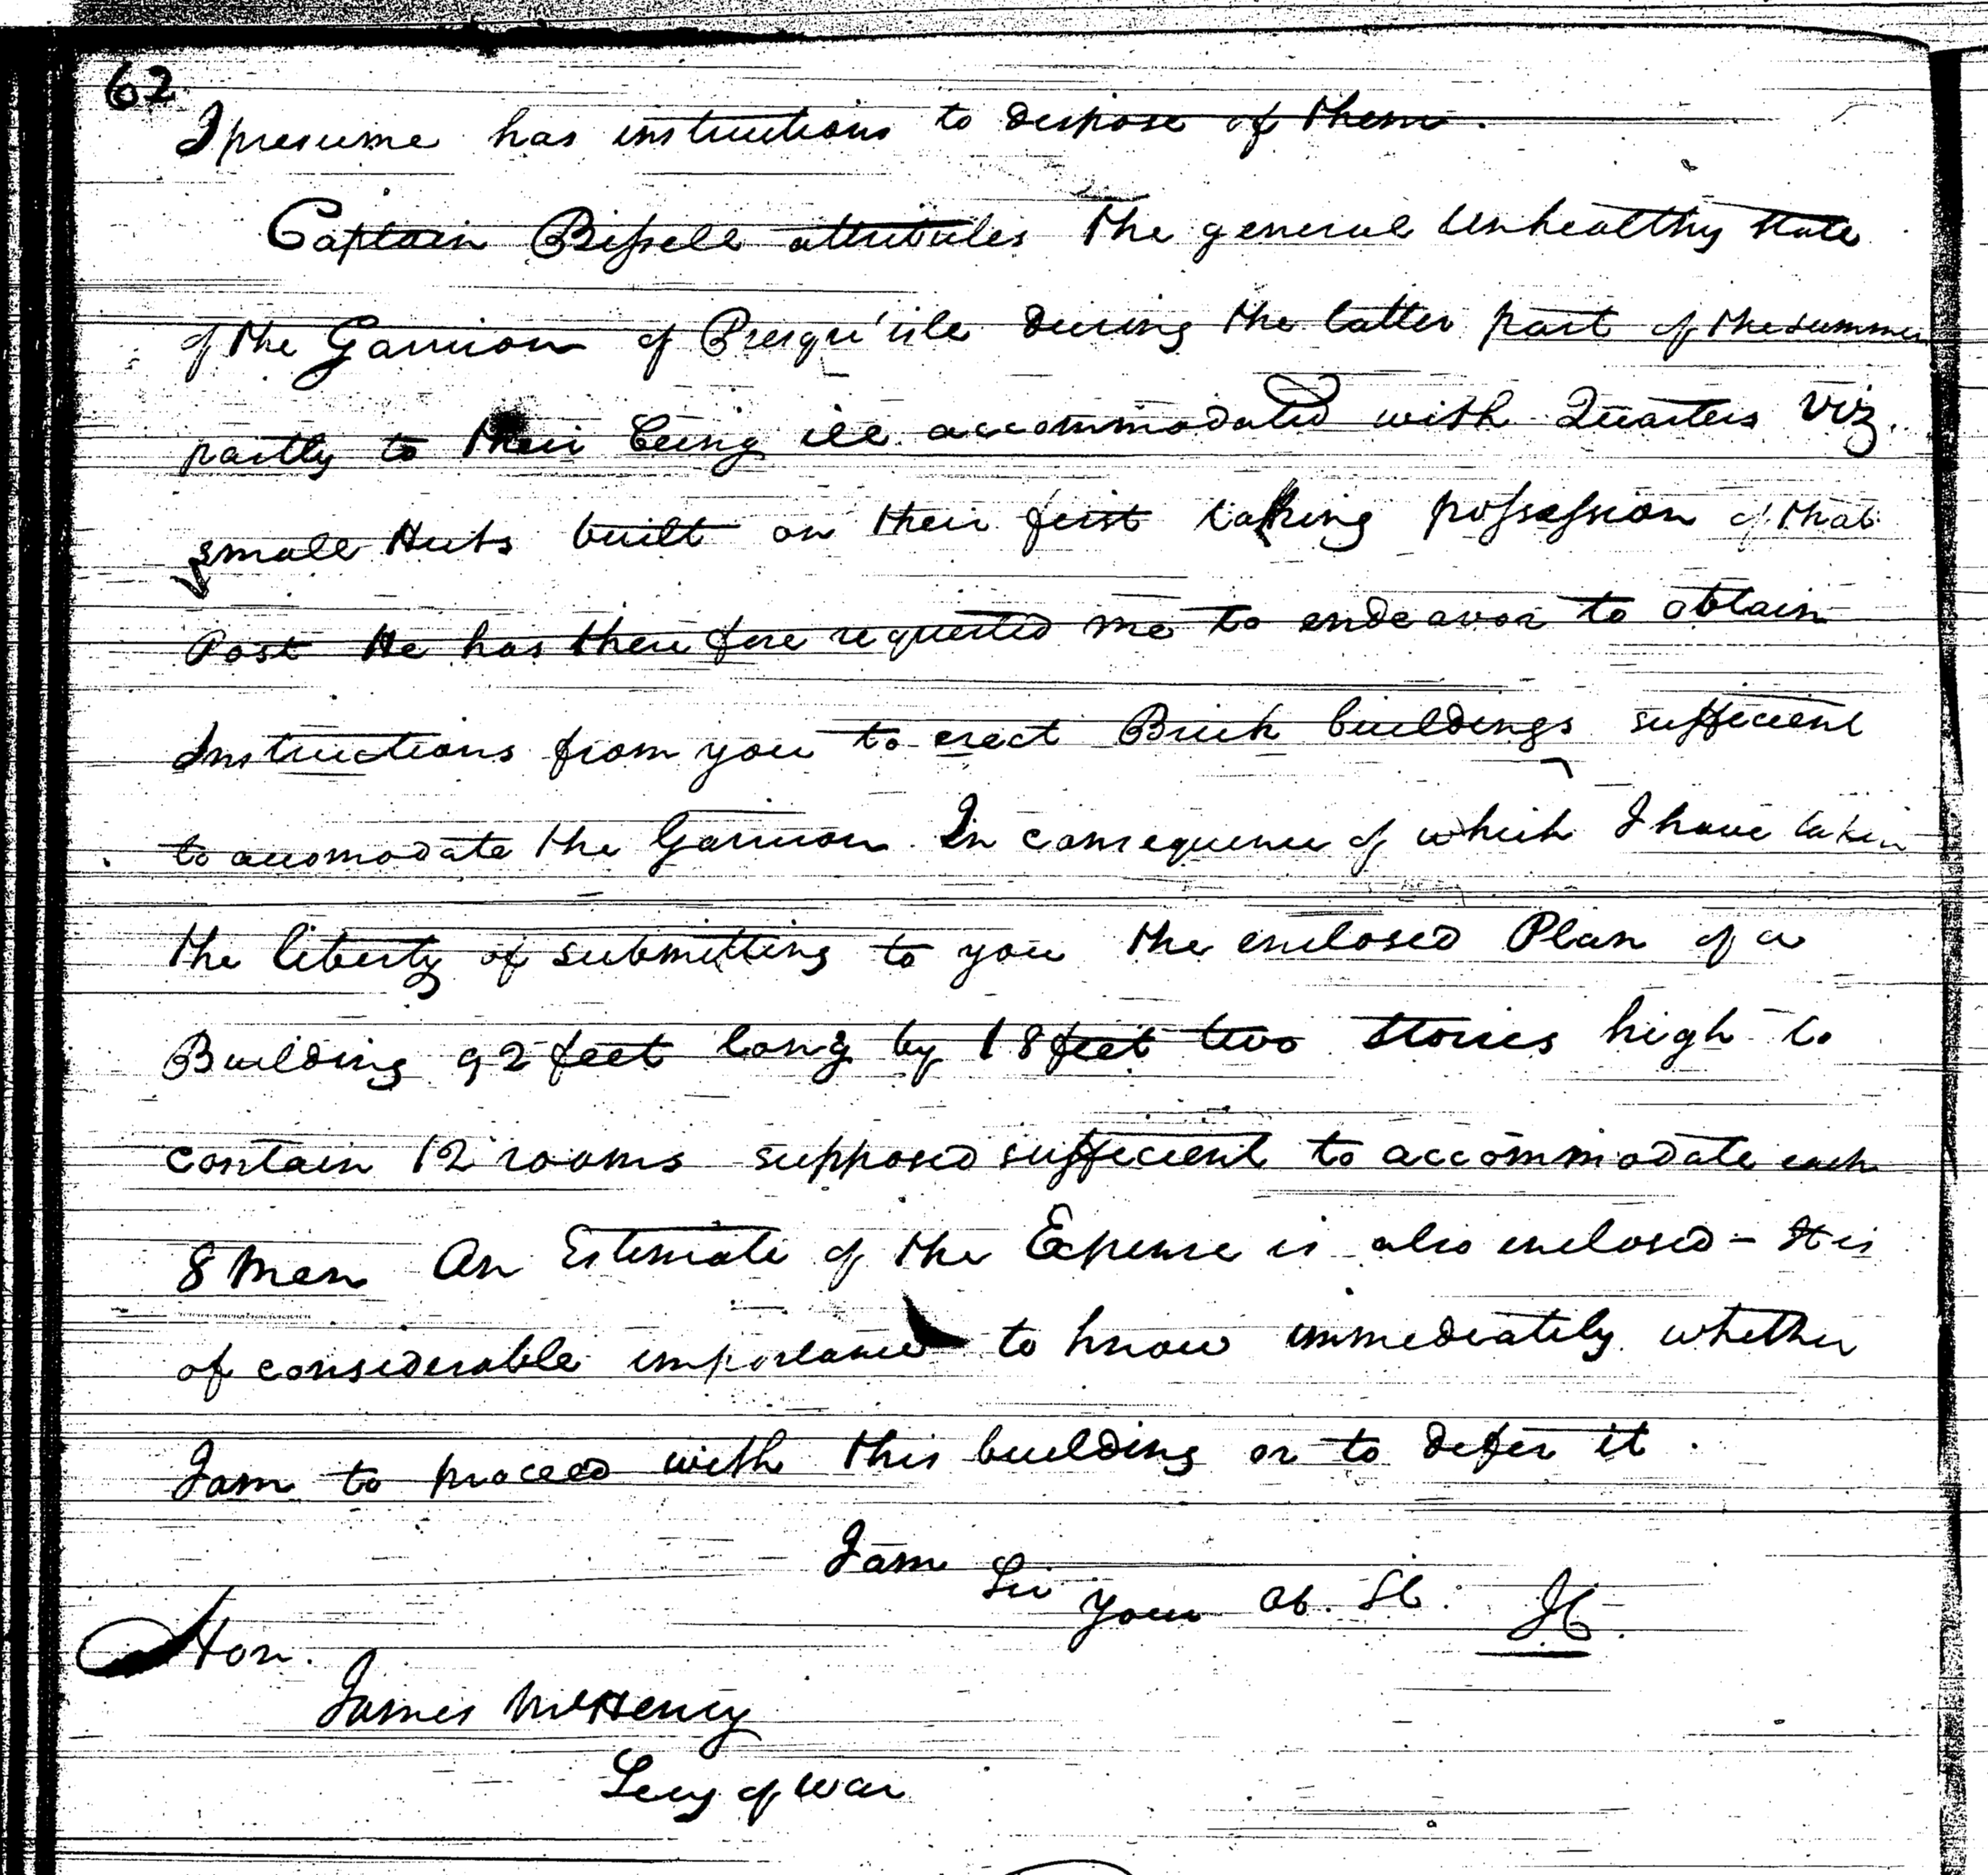 62
I presume has instructions to dispose of them.
Captain Bissell attributes the general unhealthy state
of the Garrison of Presqu'isle during the latter part of the summer
partly to their being ill accommodated with Quarters viz.
small Huts built on their first taking possession of that
Post He has therefore requested me to endeavor to obtain
Instructions from you to erect Brick buildings sufficient
to accomodate the Garrison. In consequence of which I have taken
the liberty of submitting to you the enclosed Plan of a
Building 92 feet long by 18 feet two stories high to
contain 12 rooms supposed sufficient to accommodate each
8 Men An Estimate of the Expense is also enclosed - It is
of considerable importance to know immediately whether
I am to proceed with this building or to defer it.
I am
Sir
your Ob. St.
Hon.
James McHenry
Secy of War